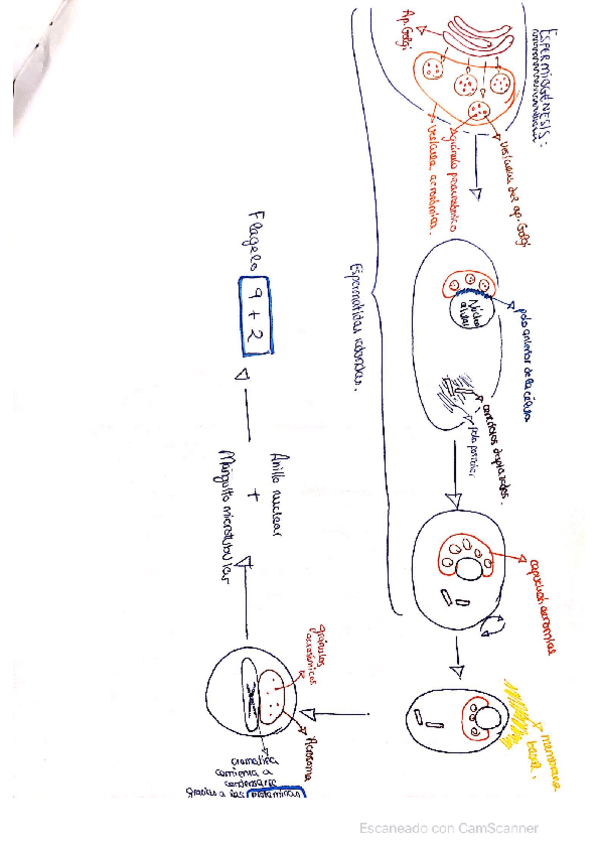 ESPERMIOGÉNESIS:
Ap. Golgi
vesículas del ap. Golgi
gránulo proacrosómico
vesícula acrosómica.
Núcleo
polo anterior de la célula
centriolos desplazados.
polo posterior
capuchón acrosomal
membrana
basal.
Espermátidas redondas.
Acrosoma
gránulos
acrosómicos
cromatina
comienza a
condensarse
gracias a las
Anillo nuclear
+
Manguito microtubular
Flagelo 9 + 2
Escaneado con CamScanner